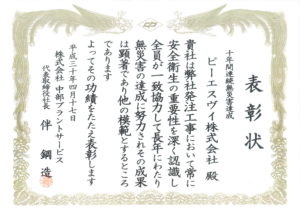 表彰状
十年間連続無災害達成
ピーエスヴィ株式会社 殿
貴社は弊社発注工事において常に
安全衛生の重要性を深く認識し
全員が一致協力して長年にわたり
無災害の達成に努力されその成果
は顕著であり他の模範とするところ
であります
よってその功績をたたえ表彰します
平成三十年四月十七日
株式会社 中部プラントサービス
代表取締役社長 伴 鋼造